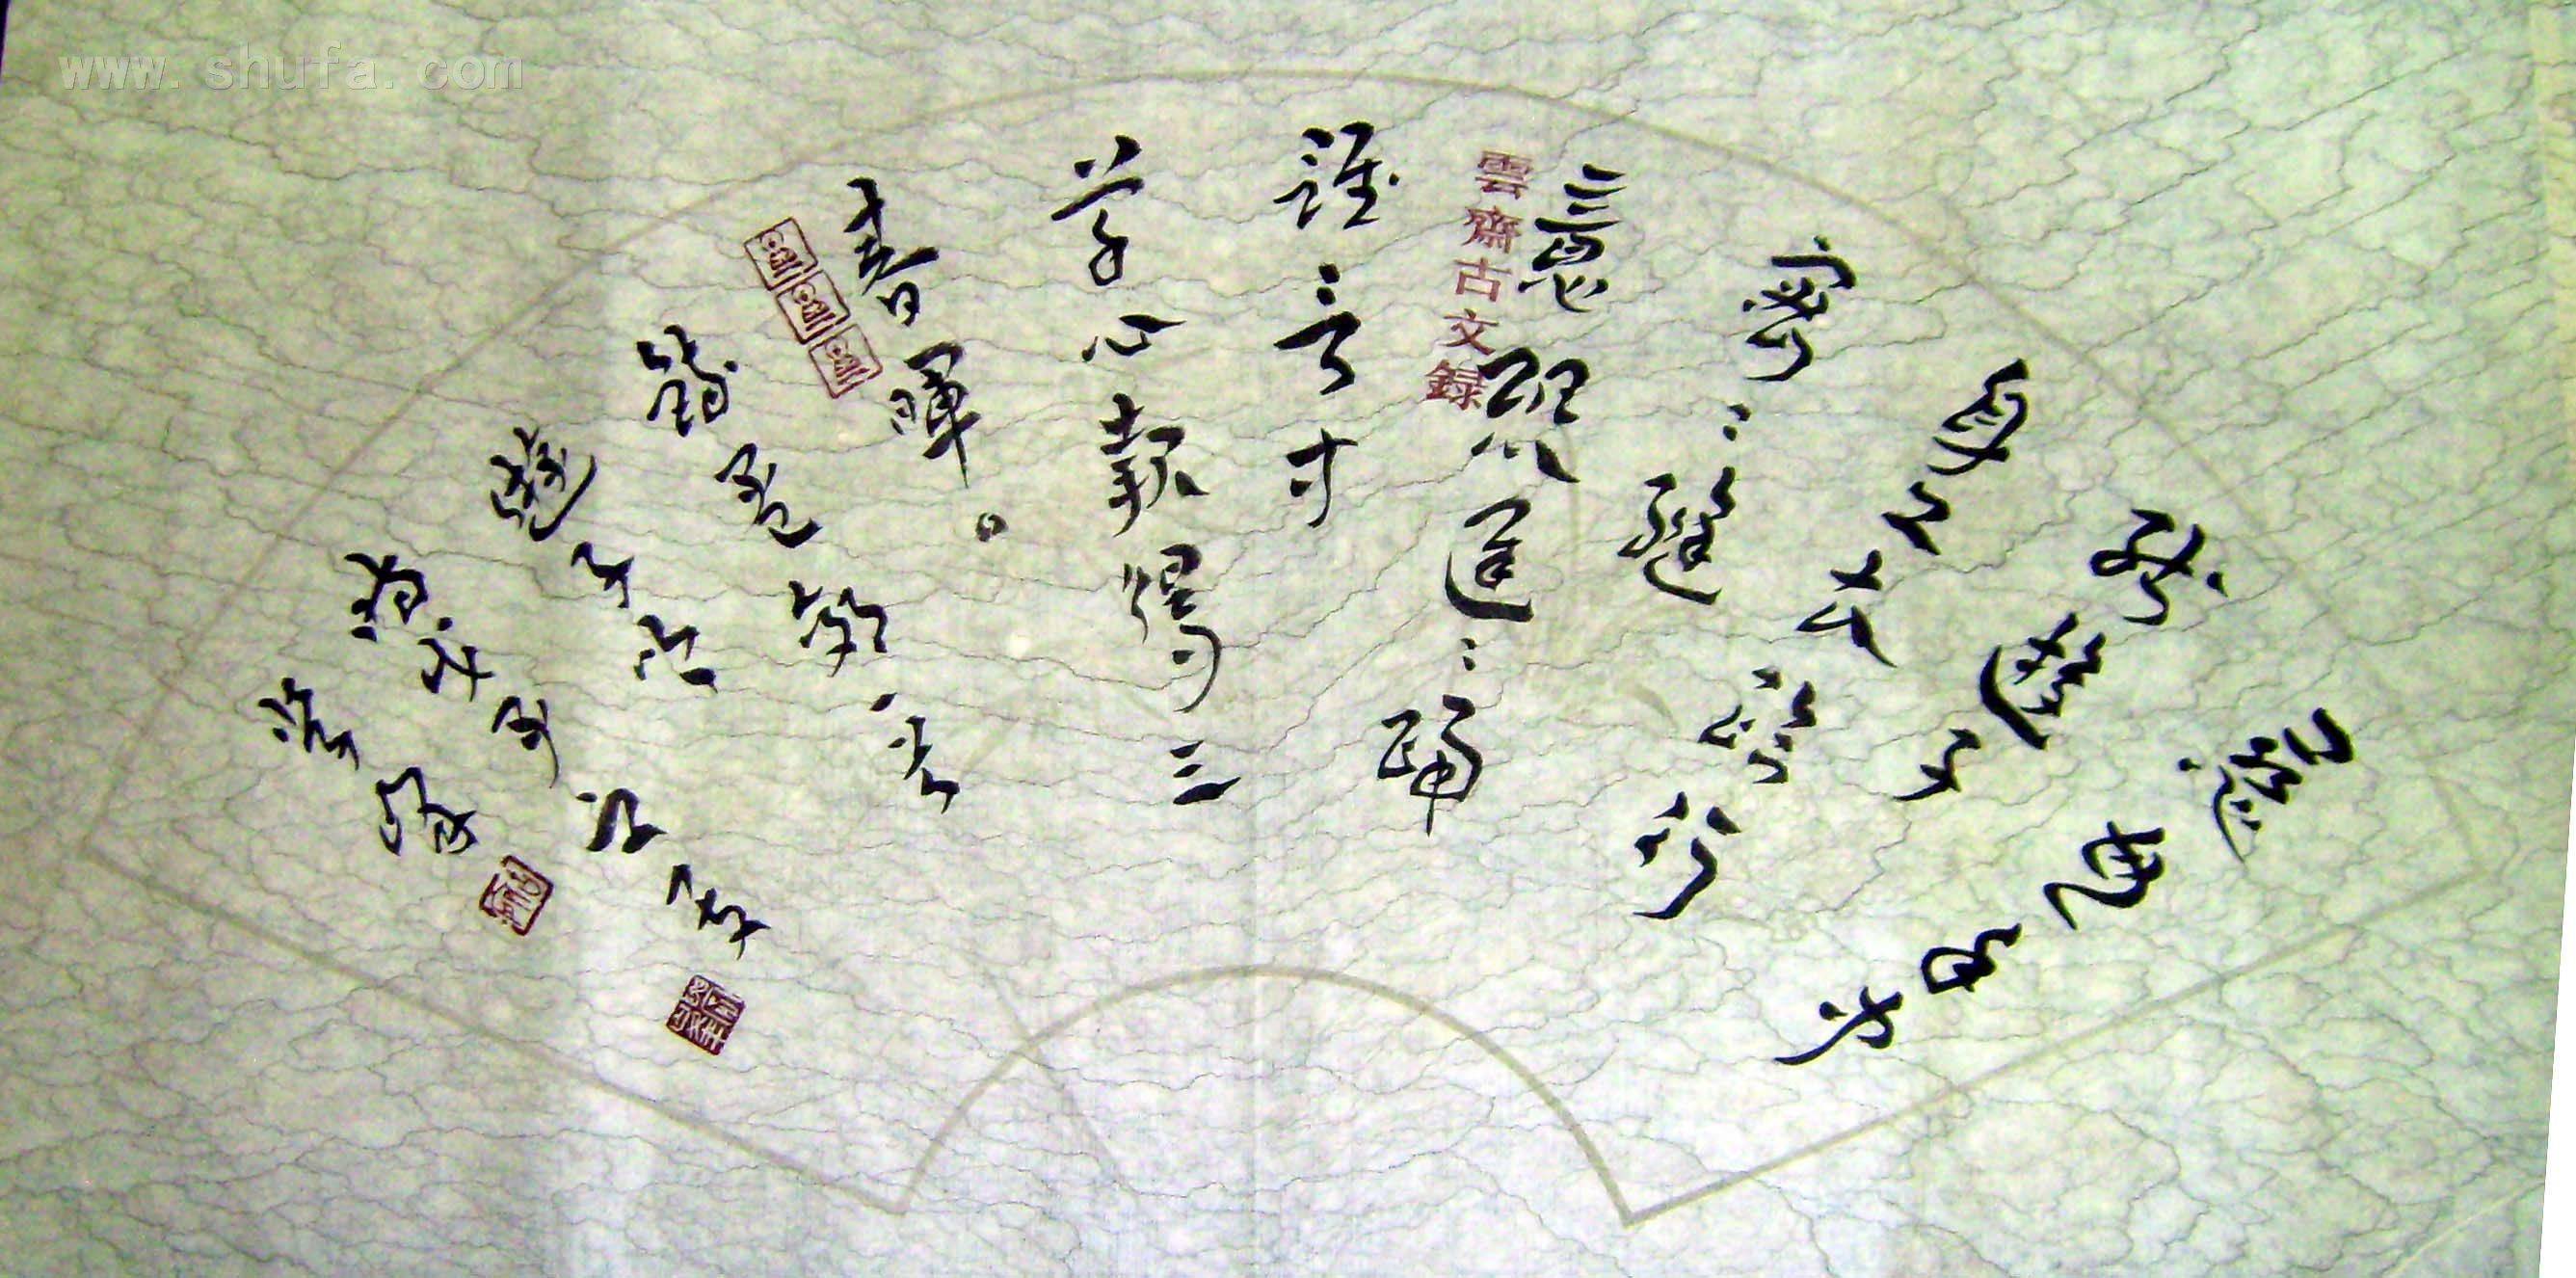 慈母手中
線遊子
身上衣臨行
密々縫
意恐遲々歸
雲齋古文録
誰言寸
草心報得三
春暉。
錄孟郊
遊子吟
www.shufa.com